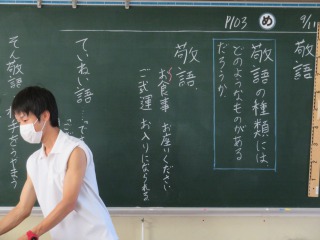 9/1
め
P103
敬語
敬語の種類には、
どのようなものがある
だろうか。
敬語
お食事 お座りください
ご武運 お入りになられる
ていねい語
そん敬語